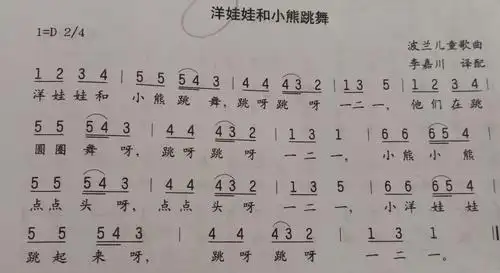 洋娃娃和小熊跳舞
1=D 2/4
波兰儿童歌曲
李嘉川 译配
1 2 3 4 | 5 5 5 4 3 | 4 4 4 3 2 | 1 3 5 | 1 2 3 4 |
洋娃娃和 小熊跳 舞, 跳呀跳呀 一二一, 他们在跳
5 5 5 4 3 | 4 4 4 3 2 | 1 3 1 | 6 6 6 5 4 |
圆圈舞呀, 跳呀跳呀 一二一, 小熊小熊
5 5 5 4 3 | 4 4 4 3 2 | 1 3 5 | 6 6 6 5 4 |
点点头呀, 点点头呀 一二一, 小洋娃娃
5 5 5 4 3 | 4 4 4 3 2 | 1 3 1 ‖
跳起来呀, 跳呀跳呀 一二一。